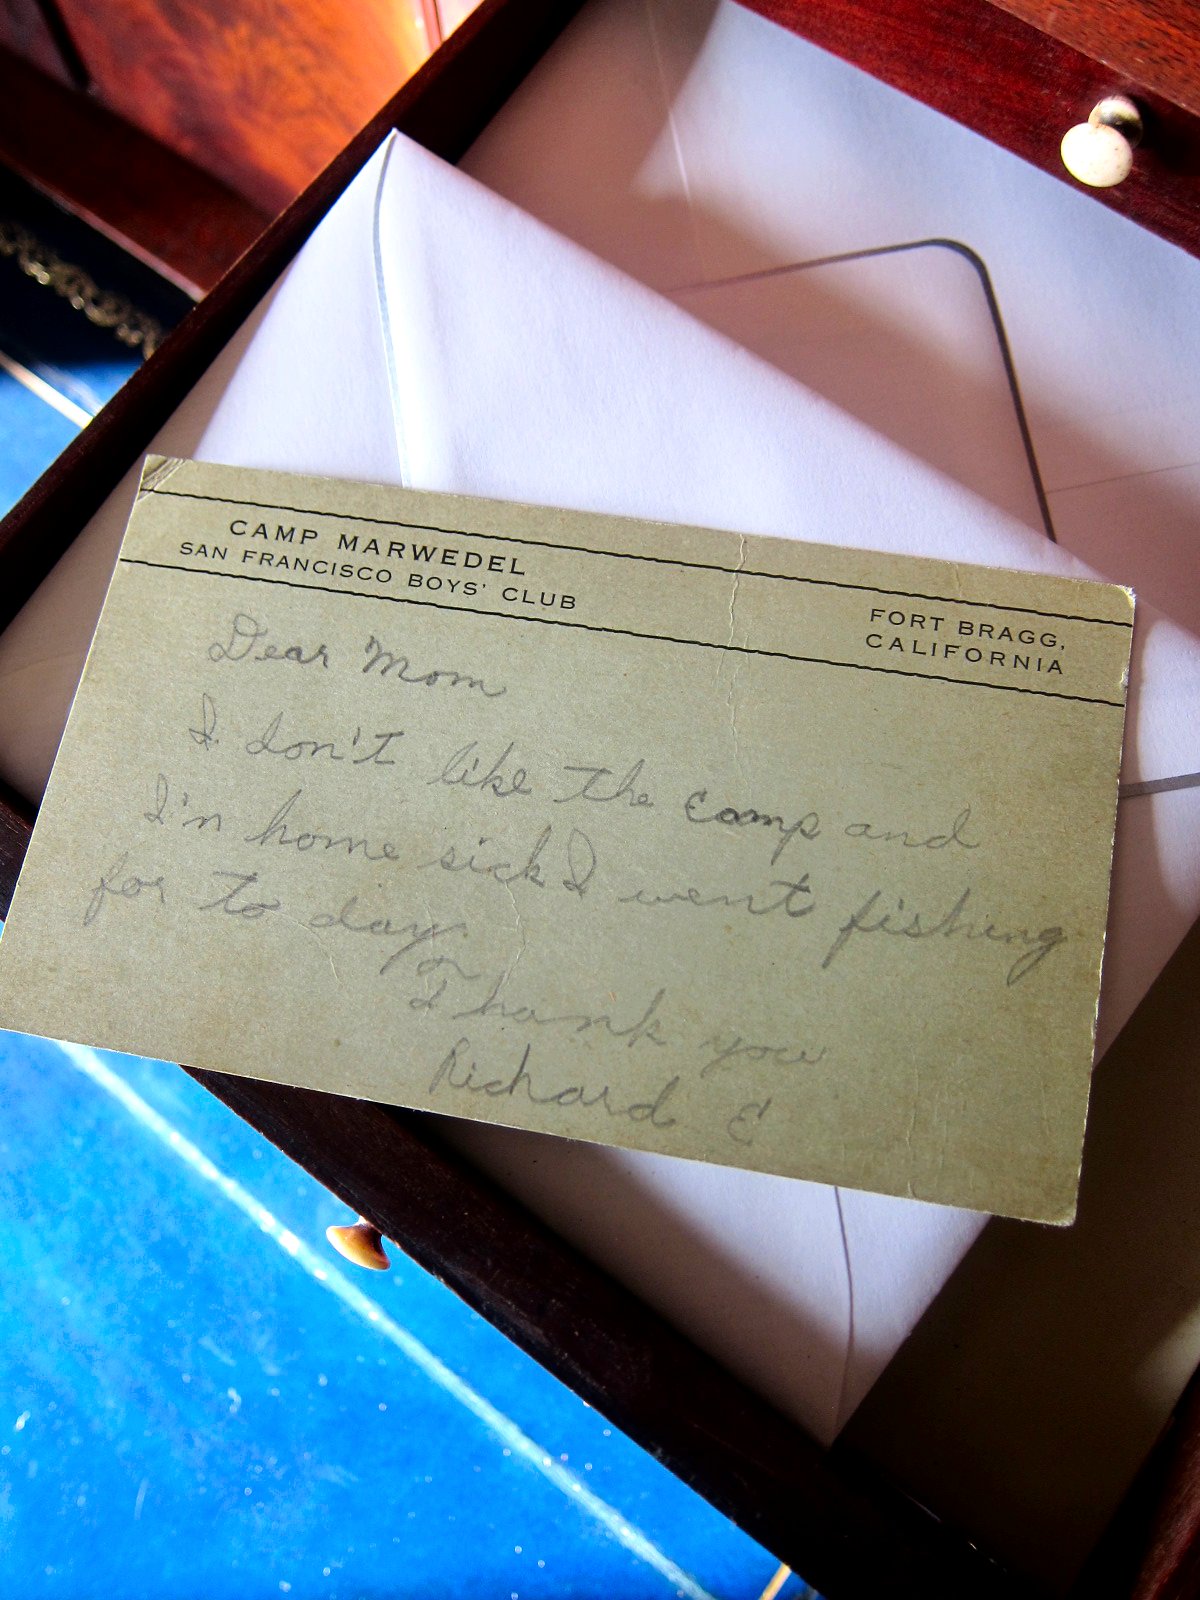 CAMP MARWEDEL
SAN FRANCISCO BOYS' CLUB
FORT BRAGG,
CALIFORNIA
Dear Mom
I don't like the camp and
I'n home sick I went fishing
for to day.
Thank you
Richard C